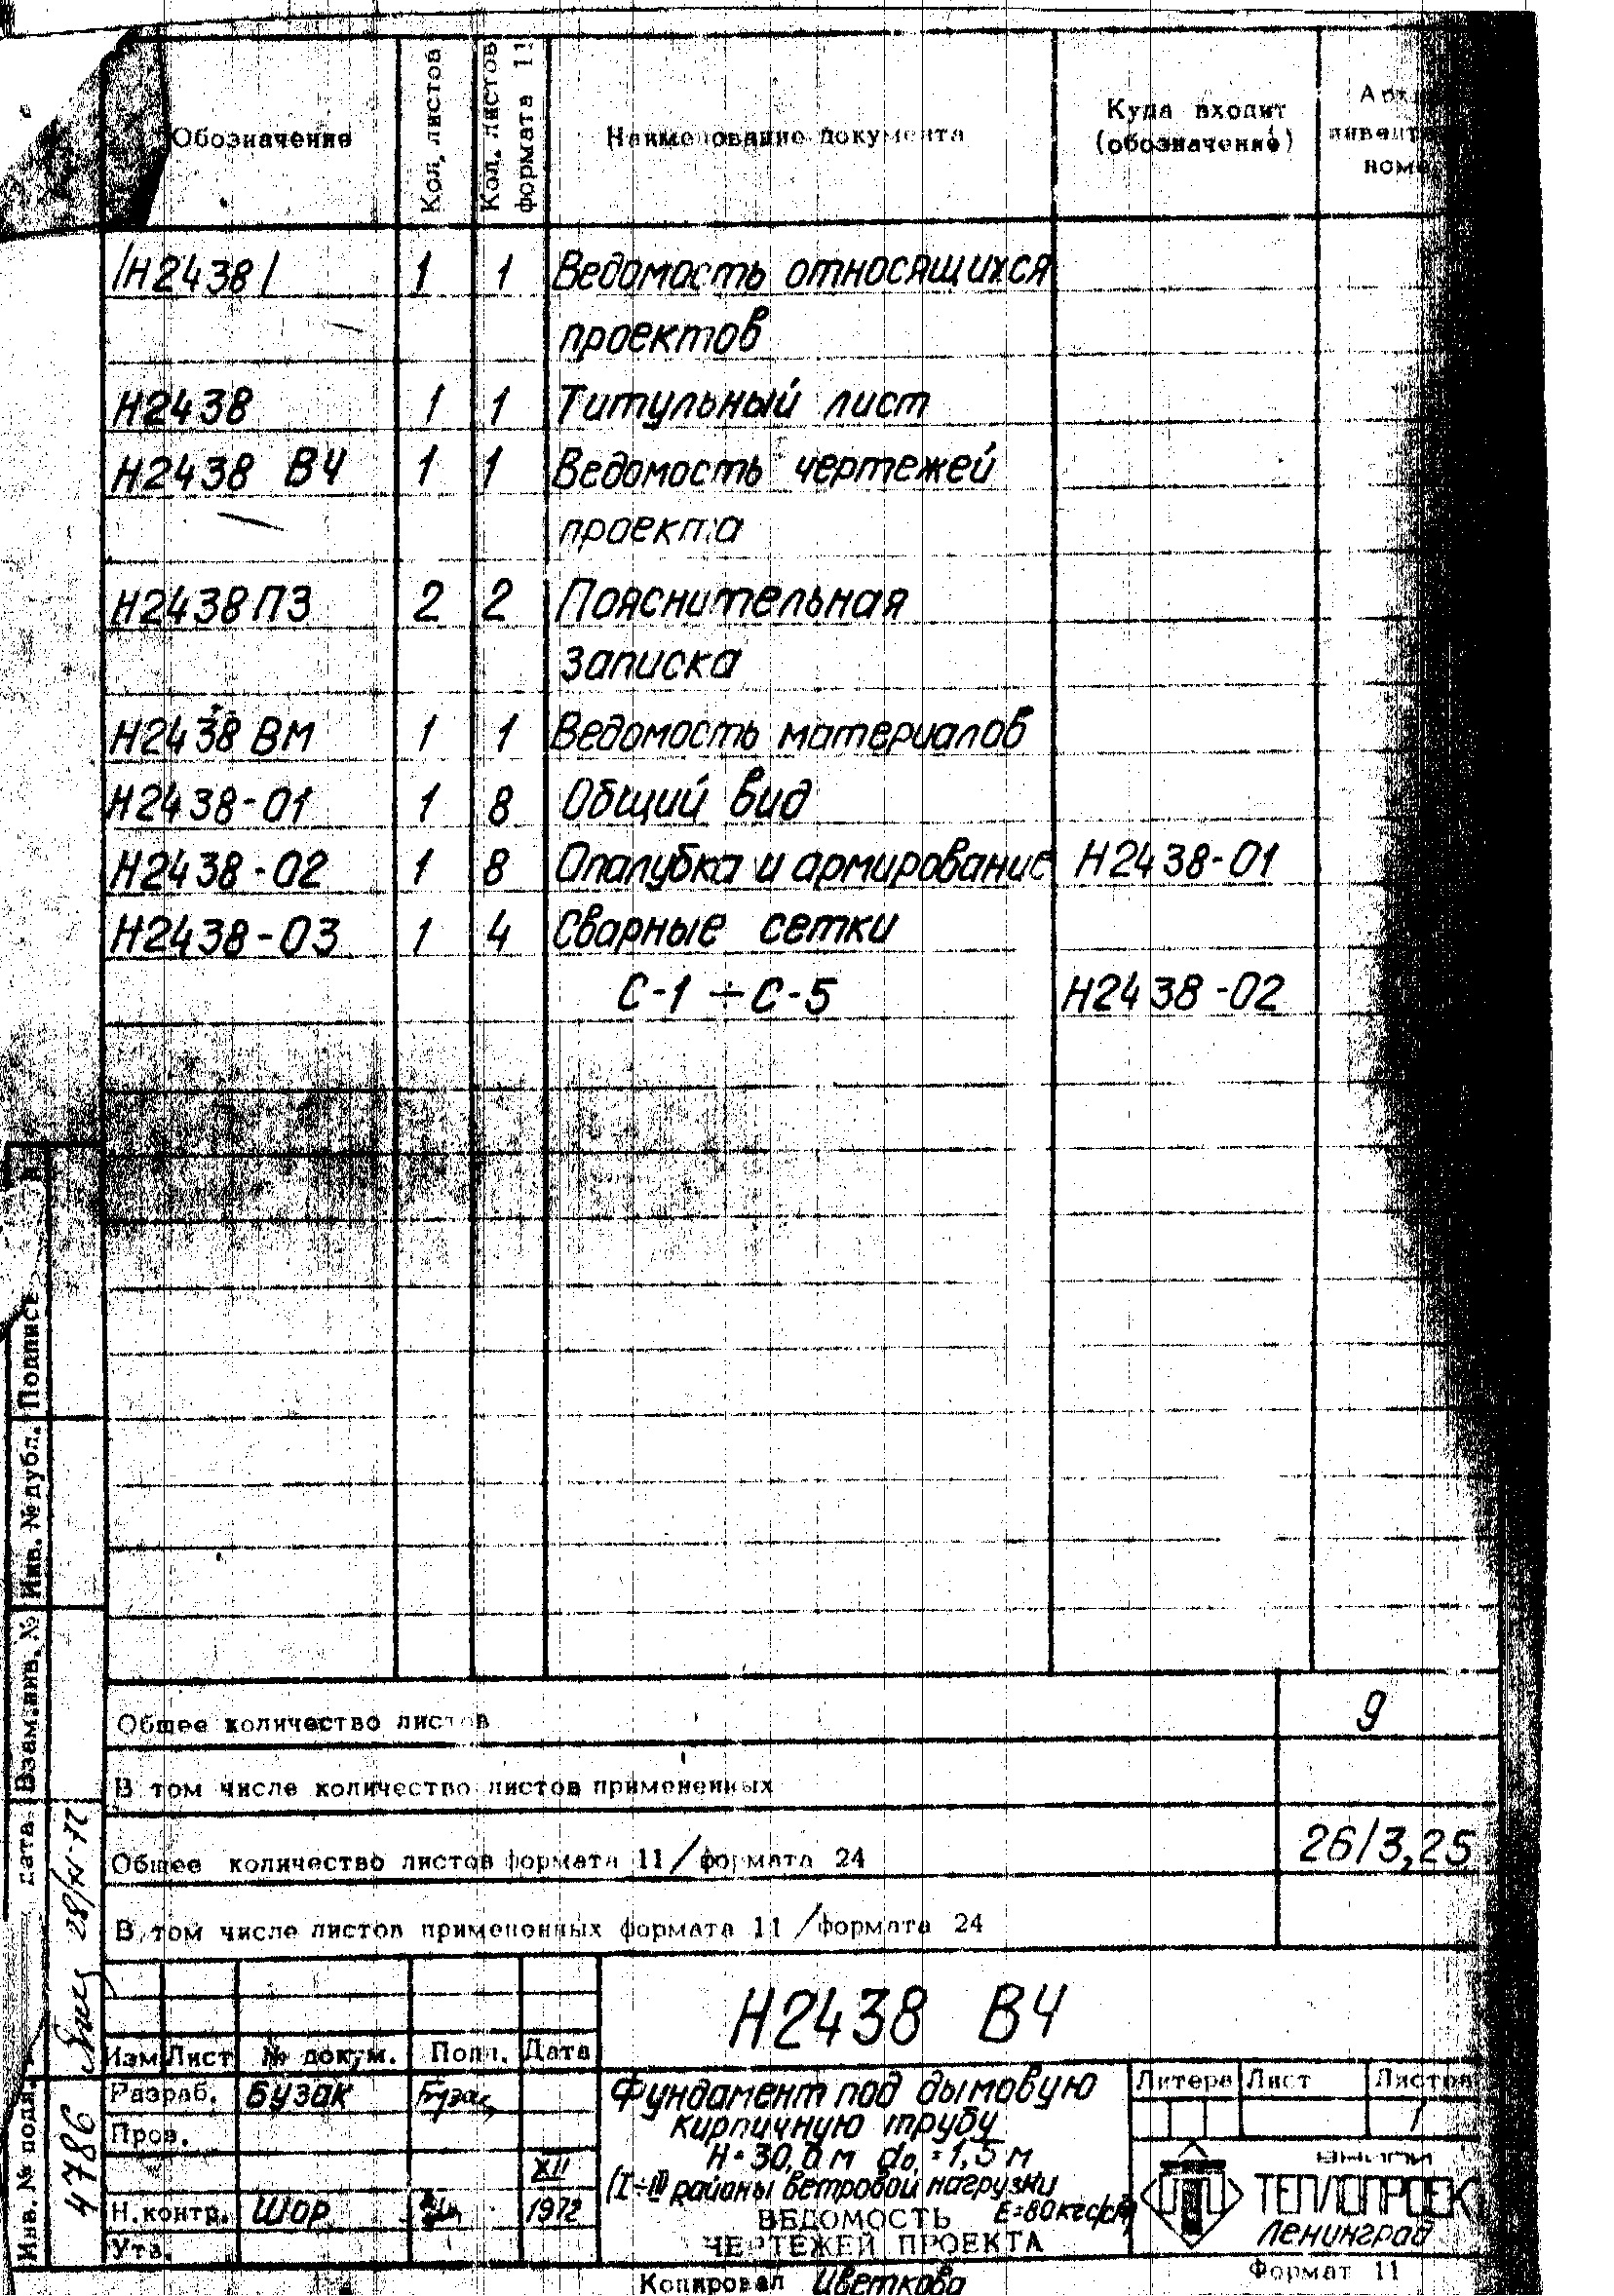 Обозначение
Кол. листов
Кол. листов
формата 11
Наименование документа
Куда входит
(обозначение)
/Н2438/ 1 1 Ведомость относящихся
проектов
Н2438 1 1 Титульный лист
Н2438 ВЧ 1 1 Ведомость чертежей
проекта
Н2438ПЗ 2 2 Пояснительная
записка
Н2438 ВМ 1 1 Ведомость материалов
Н2438-01 1 8 Общий вид
Н2438-02 1 8 Опалубка и армирование Н2438-01
Н2438-03 1 4 Сварные сетки
С-1 ÷ С-5 Н2438-02
Общее количество листов 9
В том числе количество листов примененных
Общее количество листов формата 11/формата 24 26/3,25
В том числе листов примененных формата 11/формата 24
Н2438 ВЧ
Изм Лист № докум. Подп. Дата
Разраб. Бузак Бузак
Пров.
XII
Н.контр. Шор 1972
Утв.
Фундамент под дымовую
кирпичную трубу
Н=30,0м d₀=1,5м
(I÷III районы ветровой нагрузки
ВЕДОМОСТЬ
ЧЕРТЕЖЕЙ ПРОЕКТА
Литера Лист Листов
1
ВНИПИ
ТЕПЛОПРОЕКТ
Ленинград
Копировал Цветкова
Формат 11
Инв. № подл.
4786
дата
Взам.инв. №
Инв. № дубл.